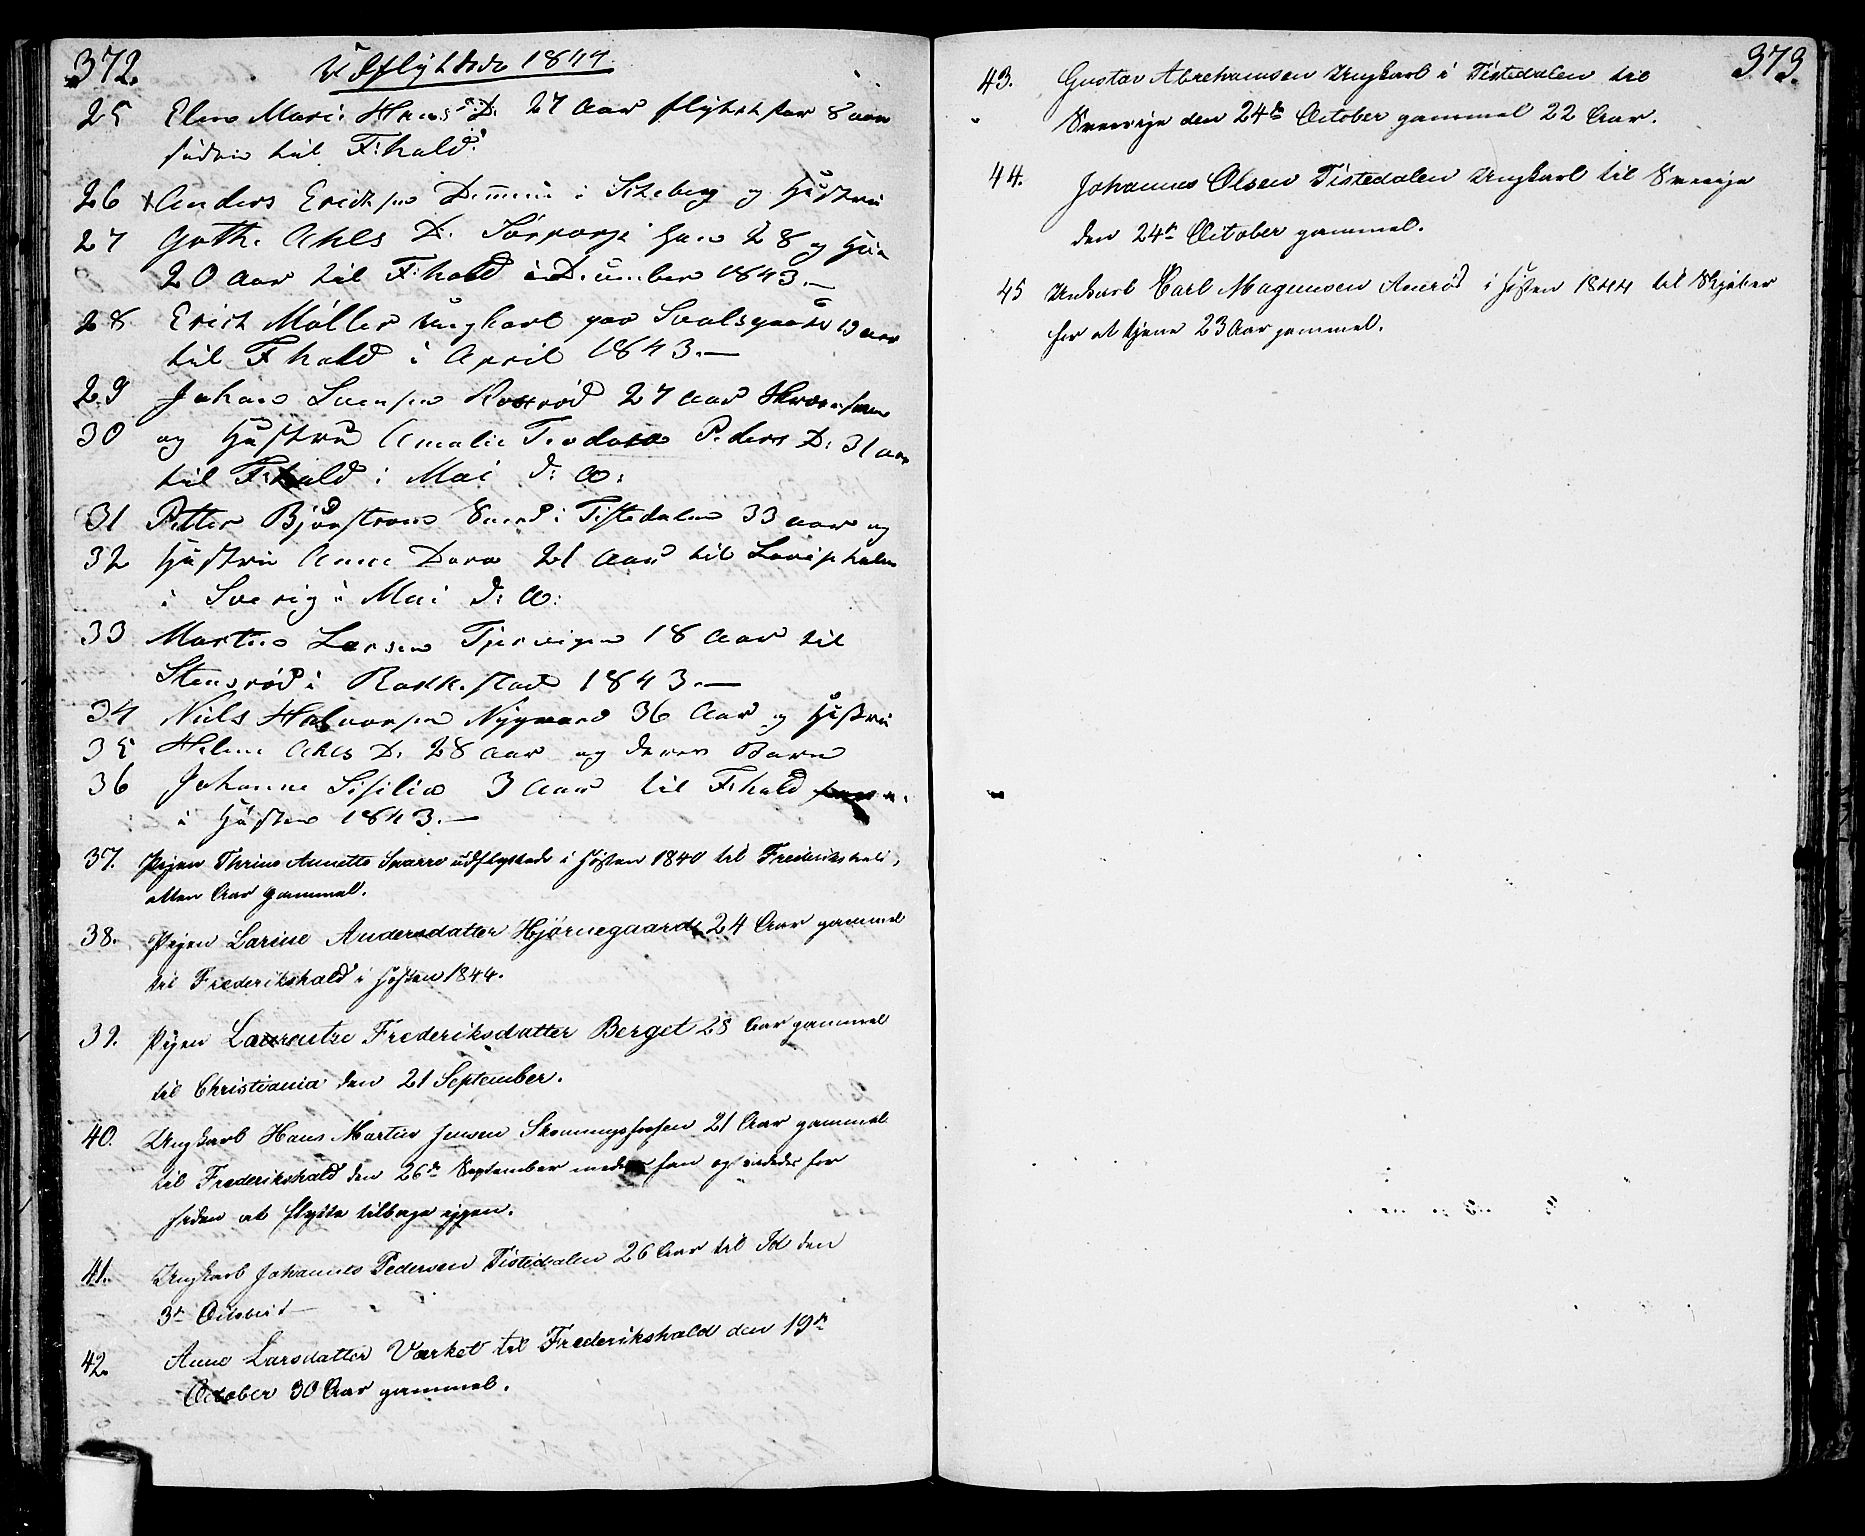 372.
Udflyttede 1844.
25 Elene Marie Hans D: 27 Aar flyttet for 8 aar
siden til F:hald.
26 Anders Erichsen i og Hustru
27 Gth. Ohls D. Sørporje han 28 og Hun
20 Aar til F:hald i December 1843.—
28 Erich Møller ungkarl paa 19 aar
til Fhald i April 1843.—
29 Johan Svensen Rosrød 27 aar
30 og Hustru Amalie Teodora Peders D: 31 aar
til F:hald i Mai d: A:
31 Petter Bjørstrøm Smed i Tistedalen 33 aar og
32 Hustru Anne Dora 21 Aar til
i Sverig i Mai d: A:
33 Martin Larsen 18 Aar til
Stensrød i Rakkestad 1843.—
34 Niels Halvorsen Nygaard 36 Aar og Hustru
35 Helene Ohls D. 28 Aar og deres Barn
36 Johanne Sisilia 3 Aar til F:hald
i Høsten 1843.—
37. Pigen Thrine Annette Sparre udflyttede i Høsten 1840 til Frederikshald,
otten Aar gammel.
38. Pigen Larine Andersdatter Hjørnegaard 24 Aar gammel
til Frederikshald i Høsten 1844.
39. Pigen Laurentze Frederiksdatter Berget 28 Aar gammel
til Christiania den 21 September.
40. Ungkarl Hans Martin Jensen Skonningsfossen 21 Aar gammel
til Frederikshald den 26de September
siden at flytte tilbage igjen.
41. Ungkarl Johannes Pedersen Tistedalen 26 Aar til Id den
3de October
42. Anne Larsdatter Værket til Frederikshald den 19de
October 30 Aar gammel.
373.
43. Gustav Abrahamsen Ungkarl i Tistedalen til
Sverrige den 24de October gammel 22 Aar.
44. Johannes Olsen Tistedalen Ungkarl til Sverrige
den 24de October gammel.
45 Unkarl Carl Magnusen Aarrød i Høsten 1844 til Skjeber
for at tjene 23 Aar gammel.